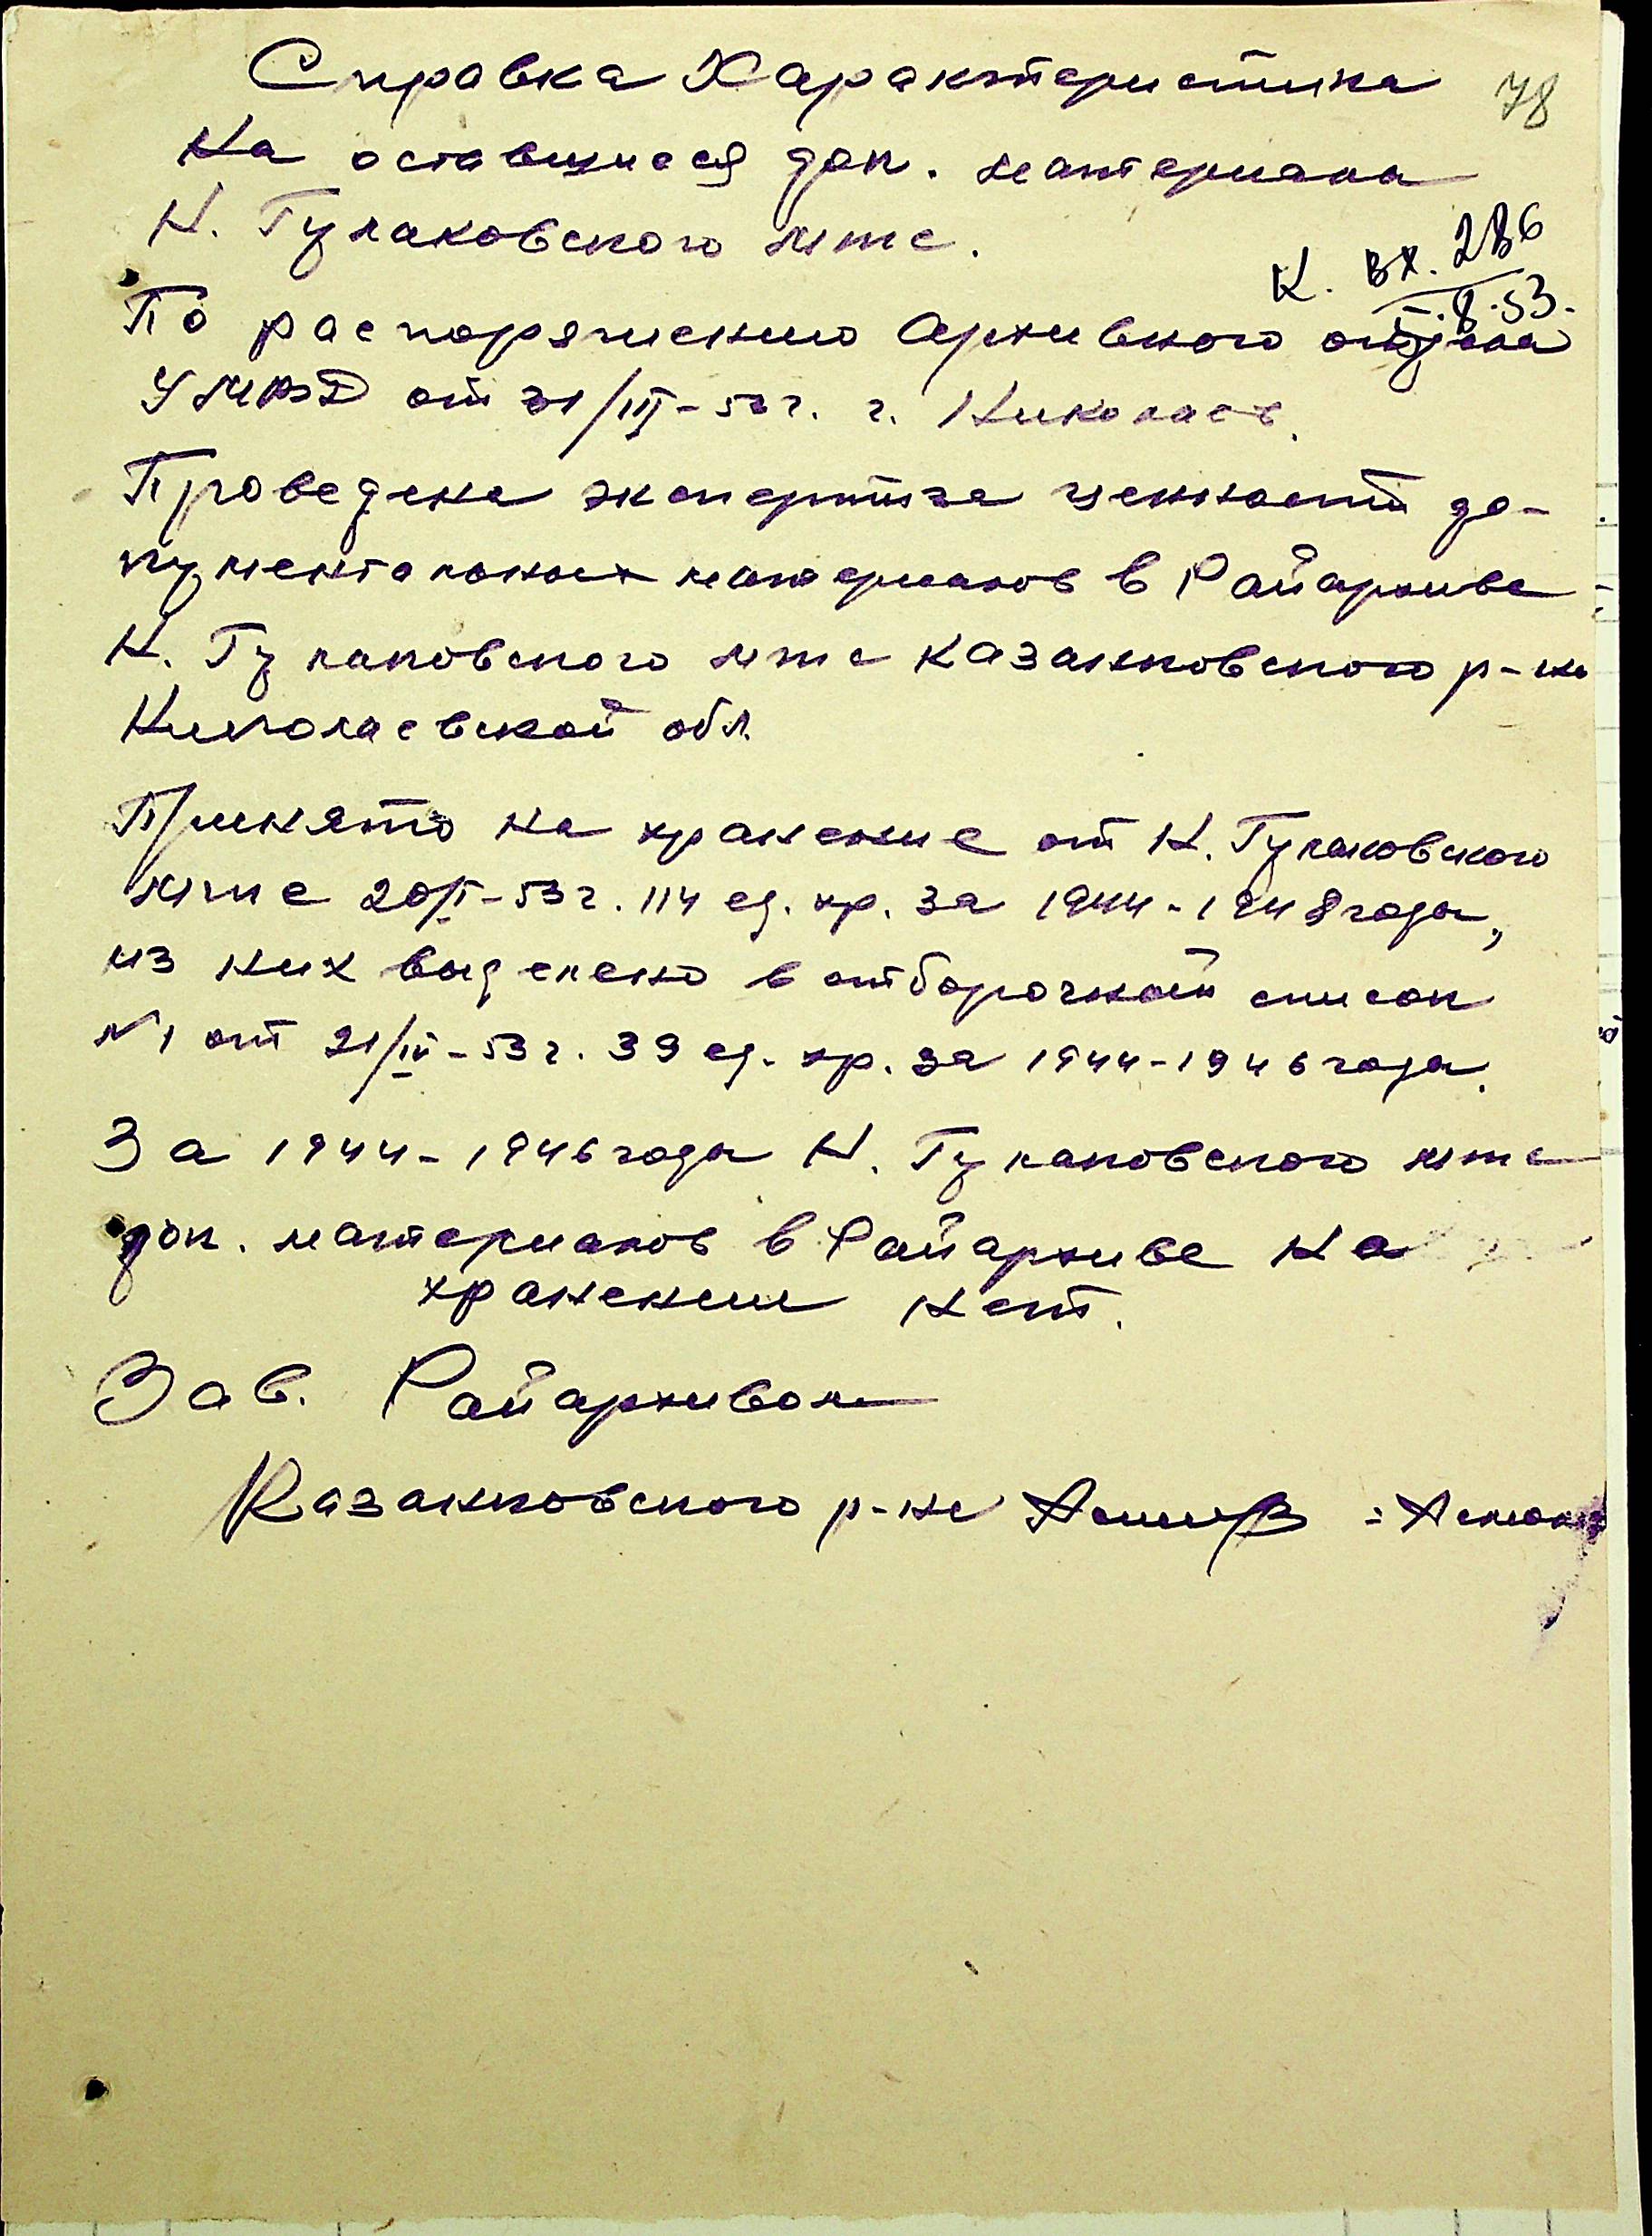 Справка Характеристика
78
На оставшиеся док. материала
Н. Гулаковского мтс.
К. вх. 286
8.53.
По распоряжению Архивного отдела
УМВД от 31/III-53 г. г. Николаев.
Проведена экспертиза ценности до-
кументальных материалов в Райархиве
Н. Гулаковского мтс Казанковского р-на
Николаевской обл.
Принято на хранение от Н. Гулаковского
мтс 20/I-53 г. 114 ед. хр. за 1944-1948 года,
из них выделено в отборочной список
№1 от 21/IV-53 г. 39 ед. хр. за 1944-1946 года.
За 1944-1946 года Н. Гулаковского мтс
док. материалов в Райархиве на
хранении нет.
Зав. Райархивом
Казанковского р-на